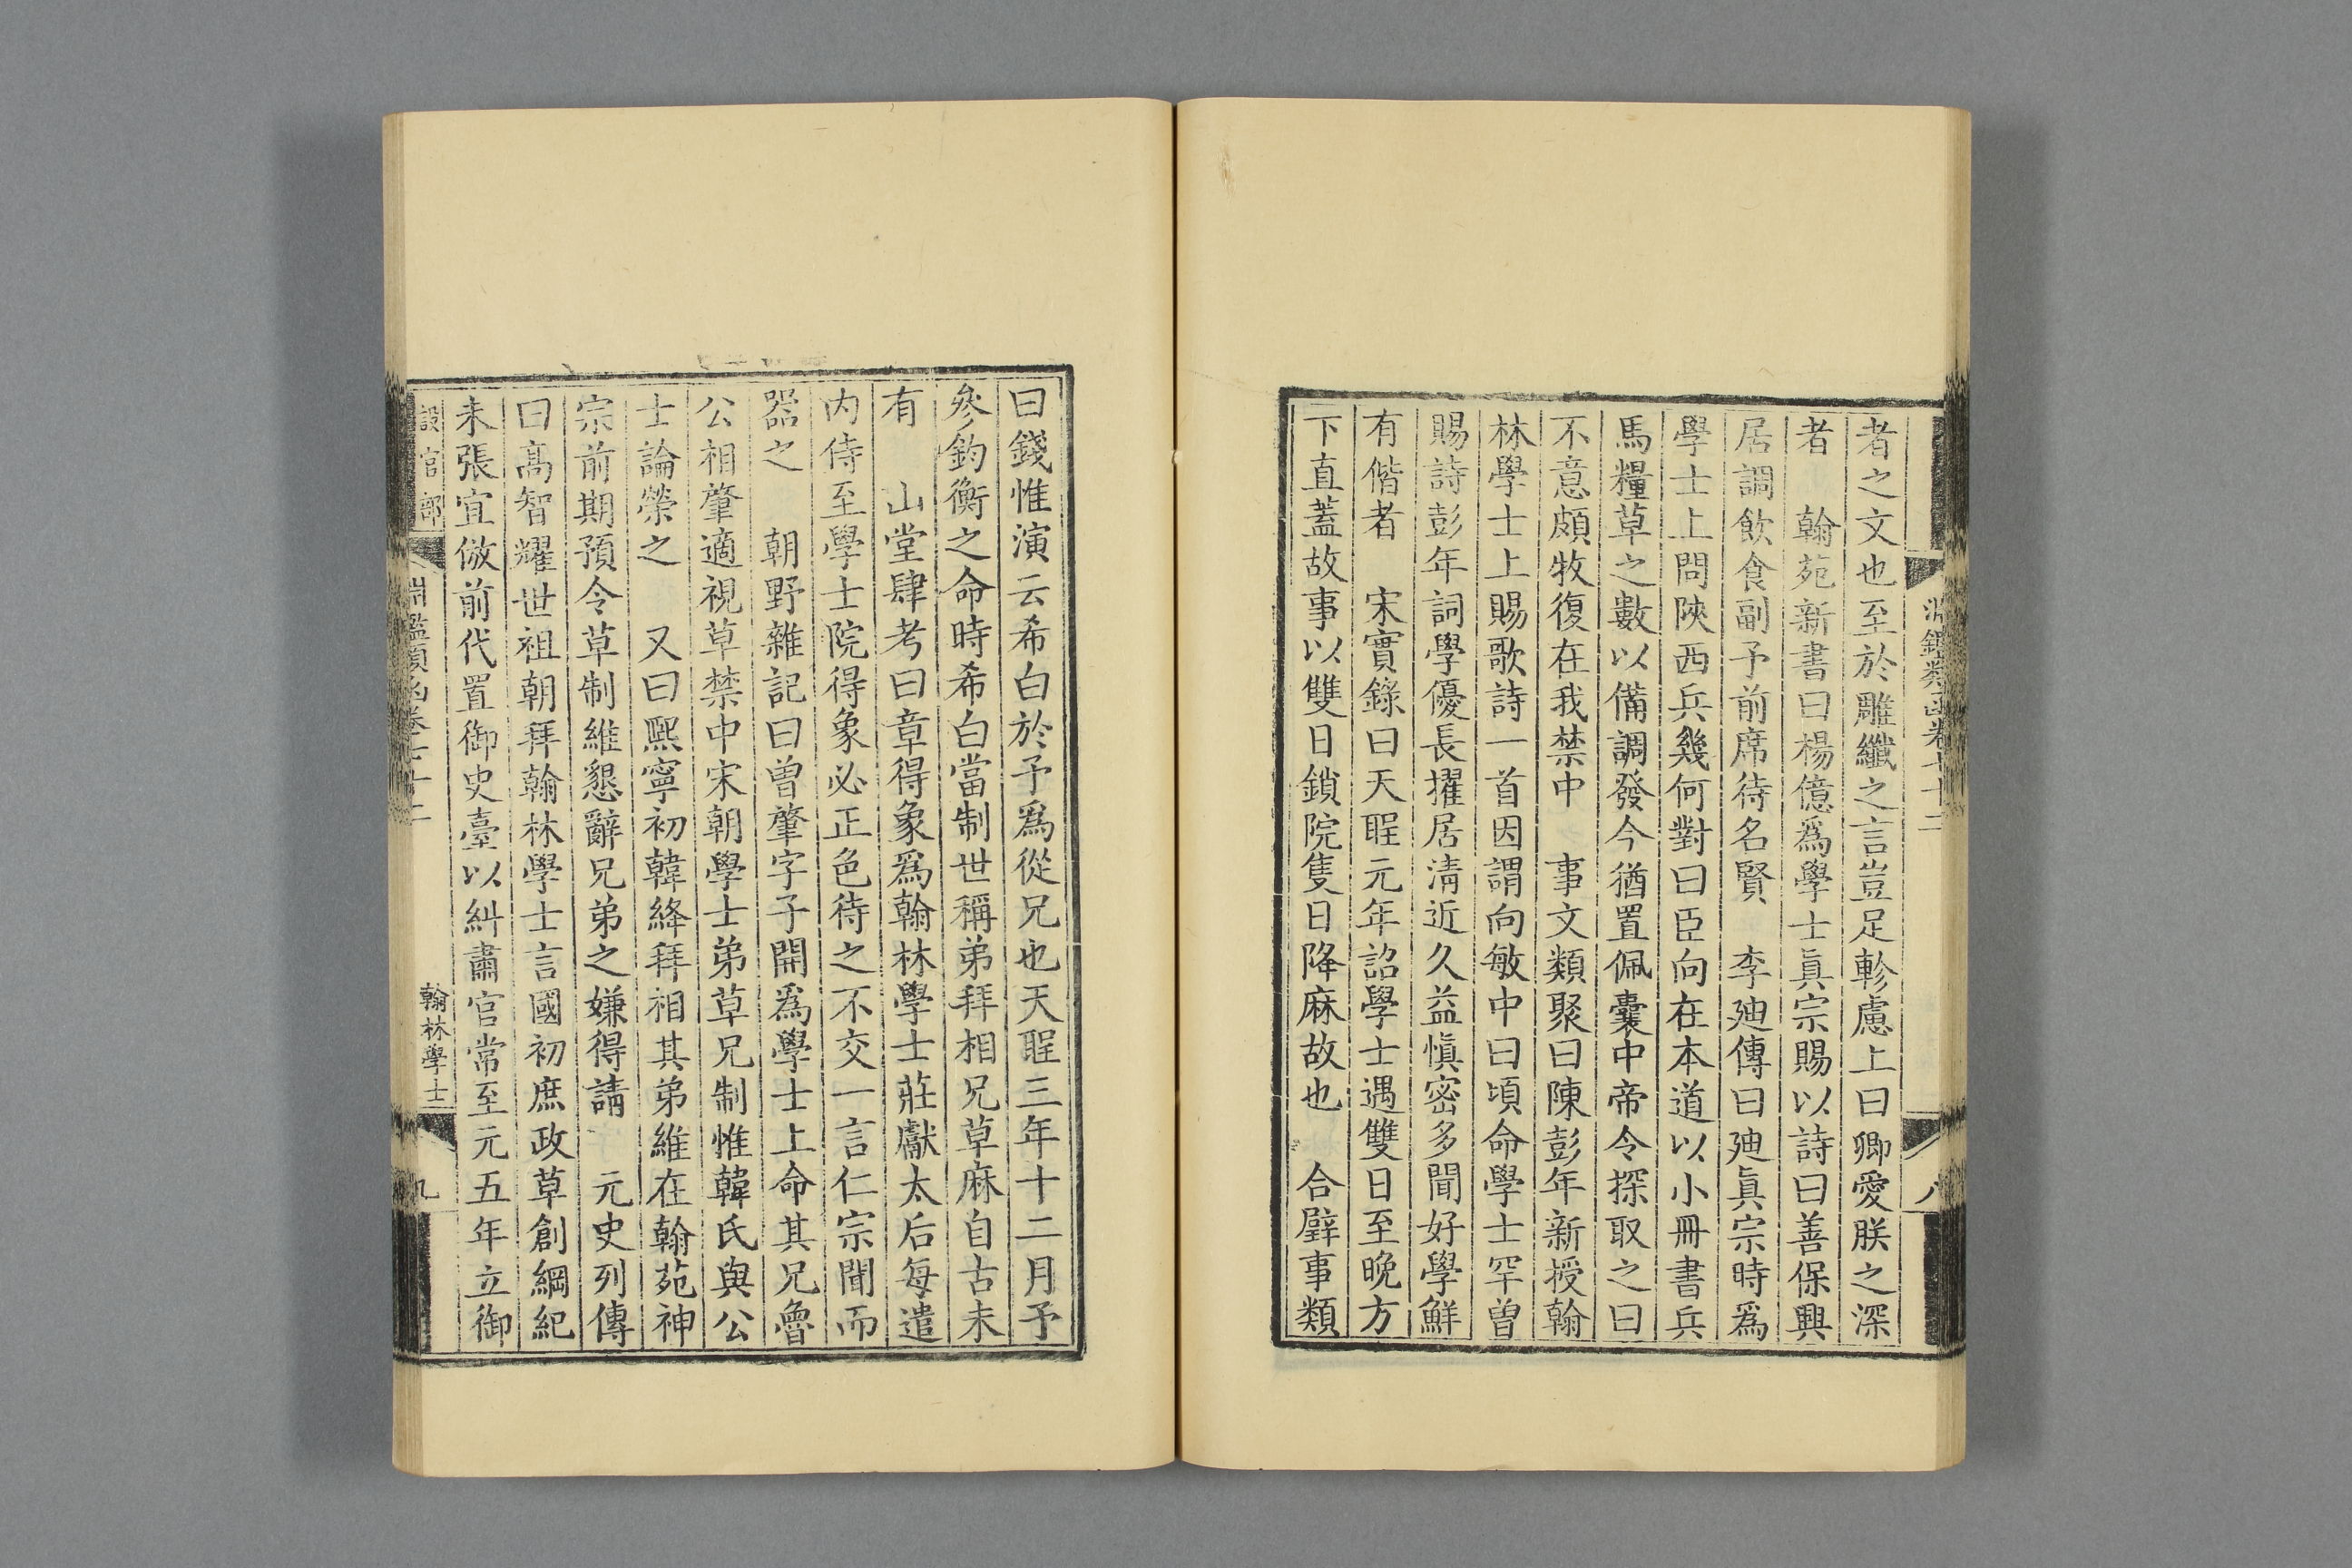 淵鑑類函卷七十二
八
者之文也至於雕纖之言豈足軫慮上曰卿愛朕之深
者　翰苑新書曰楊億爲學士眞宗賜以詩曰善保興
居調飲食副予前席待名賢　李廸傳曰廸眞宗時爲
學士上問陝西兵幾何對曰臣向在本道以小冊書兵
馬糧草之數以備調發今猶置佩囊中帝令探取之曰
不意頗牧復在我禁中　事文類聚曰陳彭年新授翰
林學士上賜歌詩一首因謂向敏中曰頃命學士罕曾
賜詩彭年詞學優長擢居清近久益愼密多聞好學鮮
有偕者　宋實錄曰天聖元年詔學士遇雙日至晚方
下直蓋故事以雙日鎖院隻日降麻故也　合璧事類
曰錢惟演云希白於予爲從兄也天聖三年十二月予
參鈞衡之命時希白當制世稱弟拜相兄草麻自古未
有　山堂肆考曰章得象爲翰林學士莊獻太后每遣
内侍至學士院得象必正色待之不交一言仁宗聞而
器之　朝野雜記曰曾肇字子開爲學士上命其兄魯
公相肇適視草禁中宋朝學士弟草兄制惟韓氏與公
士論榮之　又曰熙寧初韓絳拜相其弟維在翰苑神
宗前期預令草制維懇辭兄弟之嫌得請　元史列傳
曰高智耀世祖朝拜翰林學士言國初庶政草創綱紀
未張宜倣前代置御史臺以糾肅官常至元五年立御
設官部
淵鑑類函卷七十二
翰林學士
九